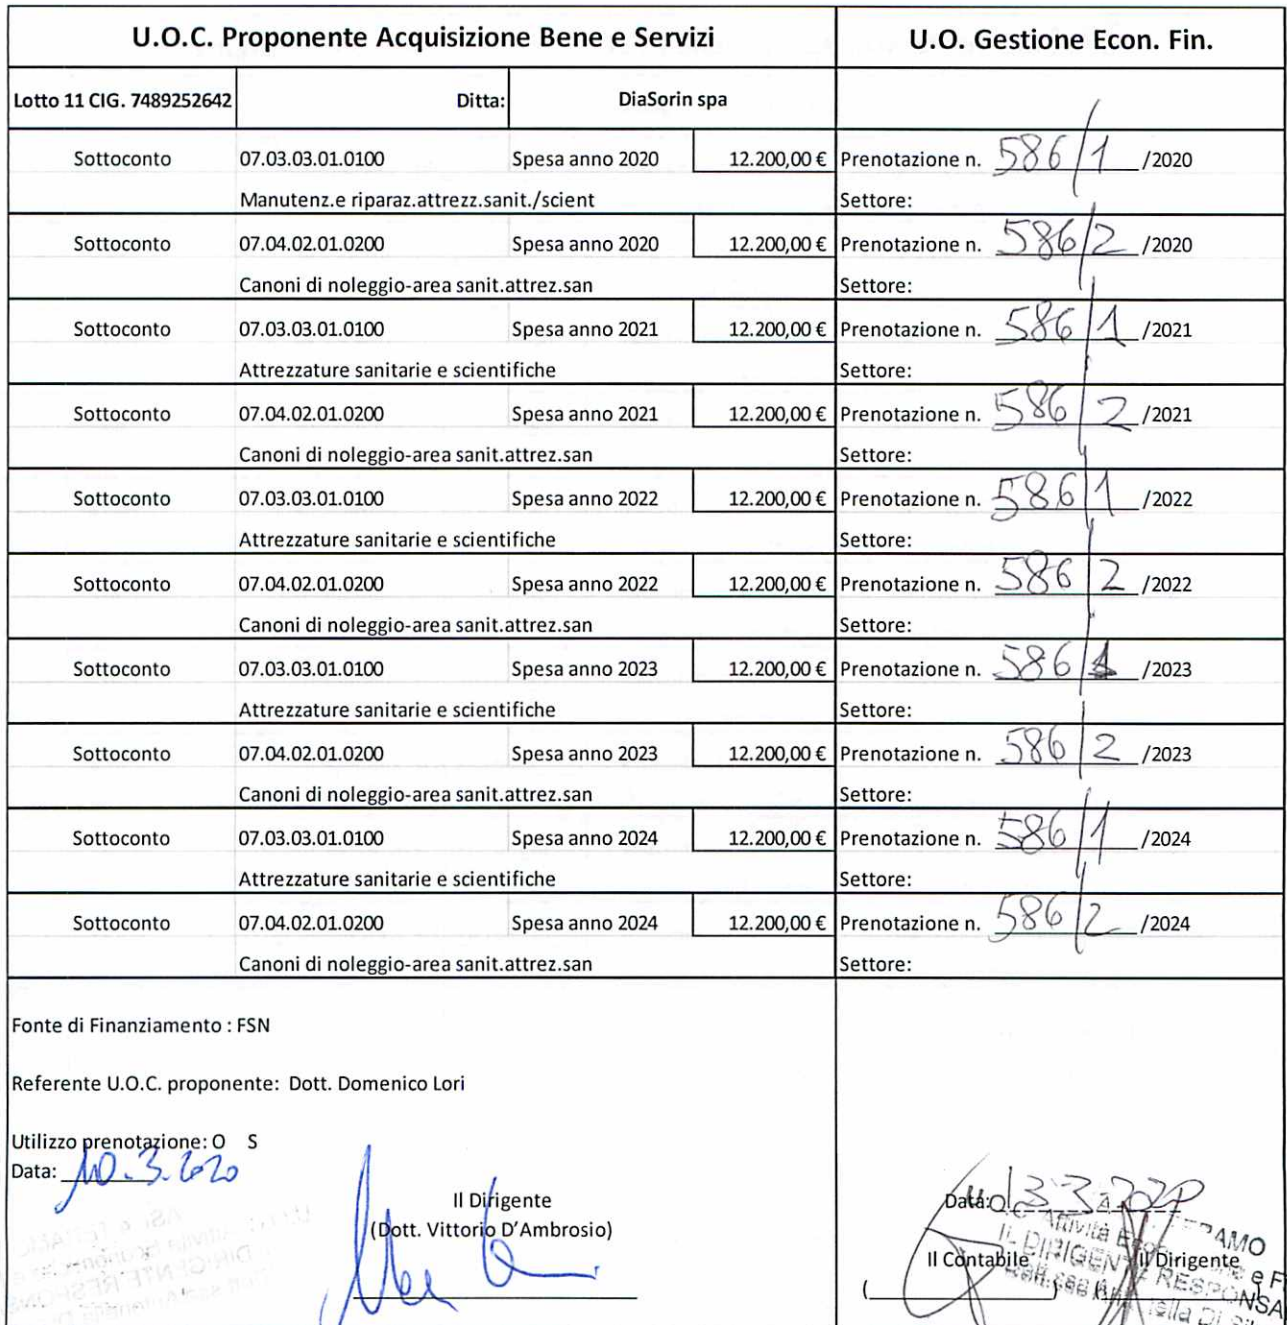 U.O.C. Proponente Acquisizione Bene e Servizi U.O. Gestione Econ. Fin.
Lotto 11 CIG. 7489252642 Ditta: DiaSorin spa
Sottoconto 07.03.03.01.0100 Spesa anno 2020 12.200,00 € Prenotazione n. 586/1 /2020
Manutenz.e riparaz.attrezz.sanit./scient Settore:
Sottoconto 07.04.02.01.0200 Spesa anno 2020 12.200,00 € Prenotazione n. 586/2 /2020
Canoni di noleggio-area sanit.attrez.san Settore:
Sottoconto 07.03.03.01.0100 Spesa anno 2021 12.200,00 € Prenotazione n. 586/1 /2021
Attrezzature sanitarie e scientifiche Settore:
Sottoconto 07.04.02.01.0200 Spesa anno 2021 12.200,00 € Prenotazione n. 586/2 /2021
Canoni di noleggio-area sanit.attrez.san Settore:
Sottoconto 07.03.03.01.0100 Spesa anno 2022 12.200,00 € Prenotazione n. 586/1 /2022
Attrezzature sanitarie e scientifiche Settore:
Sottoconto 07.04.02.01.0200 Spesa anno 2022 12.200,00 € Prenotazione n. 586/2 /2022
Canoni di noleggio-area sanit.attrez.san Settore:
Sottoconto 07.03.03.01.0100 Spesa anno 2023 12.200,00 € Prenotazione n. 586/1 /2023
Attrezzature sanitarie e scientifiche Settore:
Sottoconto 07.04.02.01.0200 Spesa anno 2023 12.200,00 € Prenotazione n. 586/2 /2023
Canoni di noleggio-area sanit.attrez.san Settore:
Sottoconto 07.03.03.01.0100 Spesa anno 2024 12.200,00 € Prenotazione n. 586/1 /2024
Attrezzature sanitarie e scientifiche Settore:
Sottoconto 07.04.02.01.0200 Spesa anno 2024 12.200,00 € Prenotazione n. 586/2 /2024
Canoni di noleggio-area sanit.attrez.san Settore:
Fonte di Finanziamento : FSN
Referente U.O.C. proponente: Dott. Domenico Lori
Utilizzo prenotazione: O S
Data: 10.3.2020
Il Dirigente
(Dott. Vittorio D'Ambrosio)
Data: 13 3 2020
Il Contabile Il Dirigente
U.O.C. Attività
IL DIRIGENTE RESPONSA